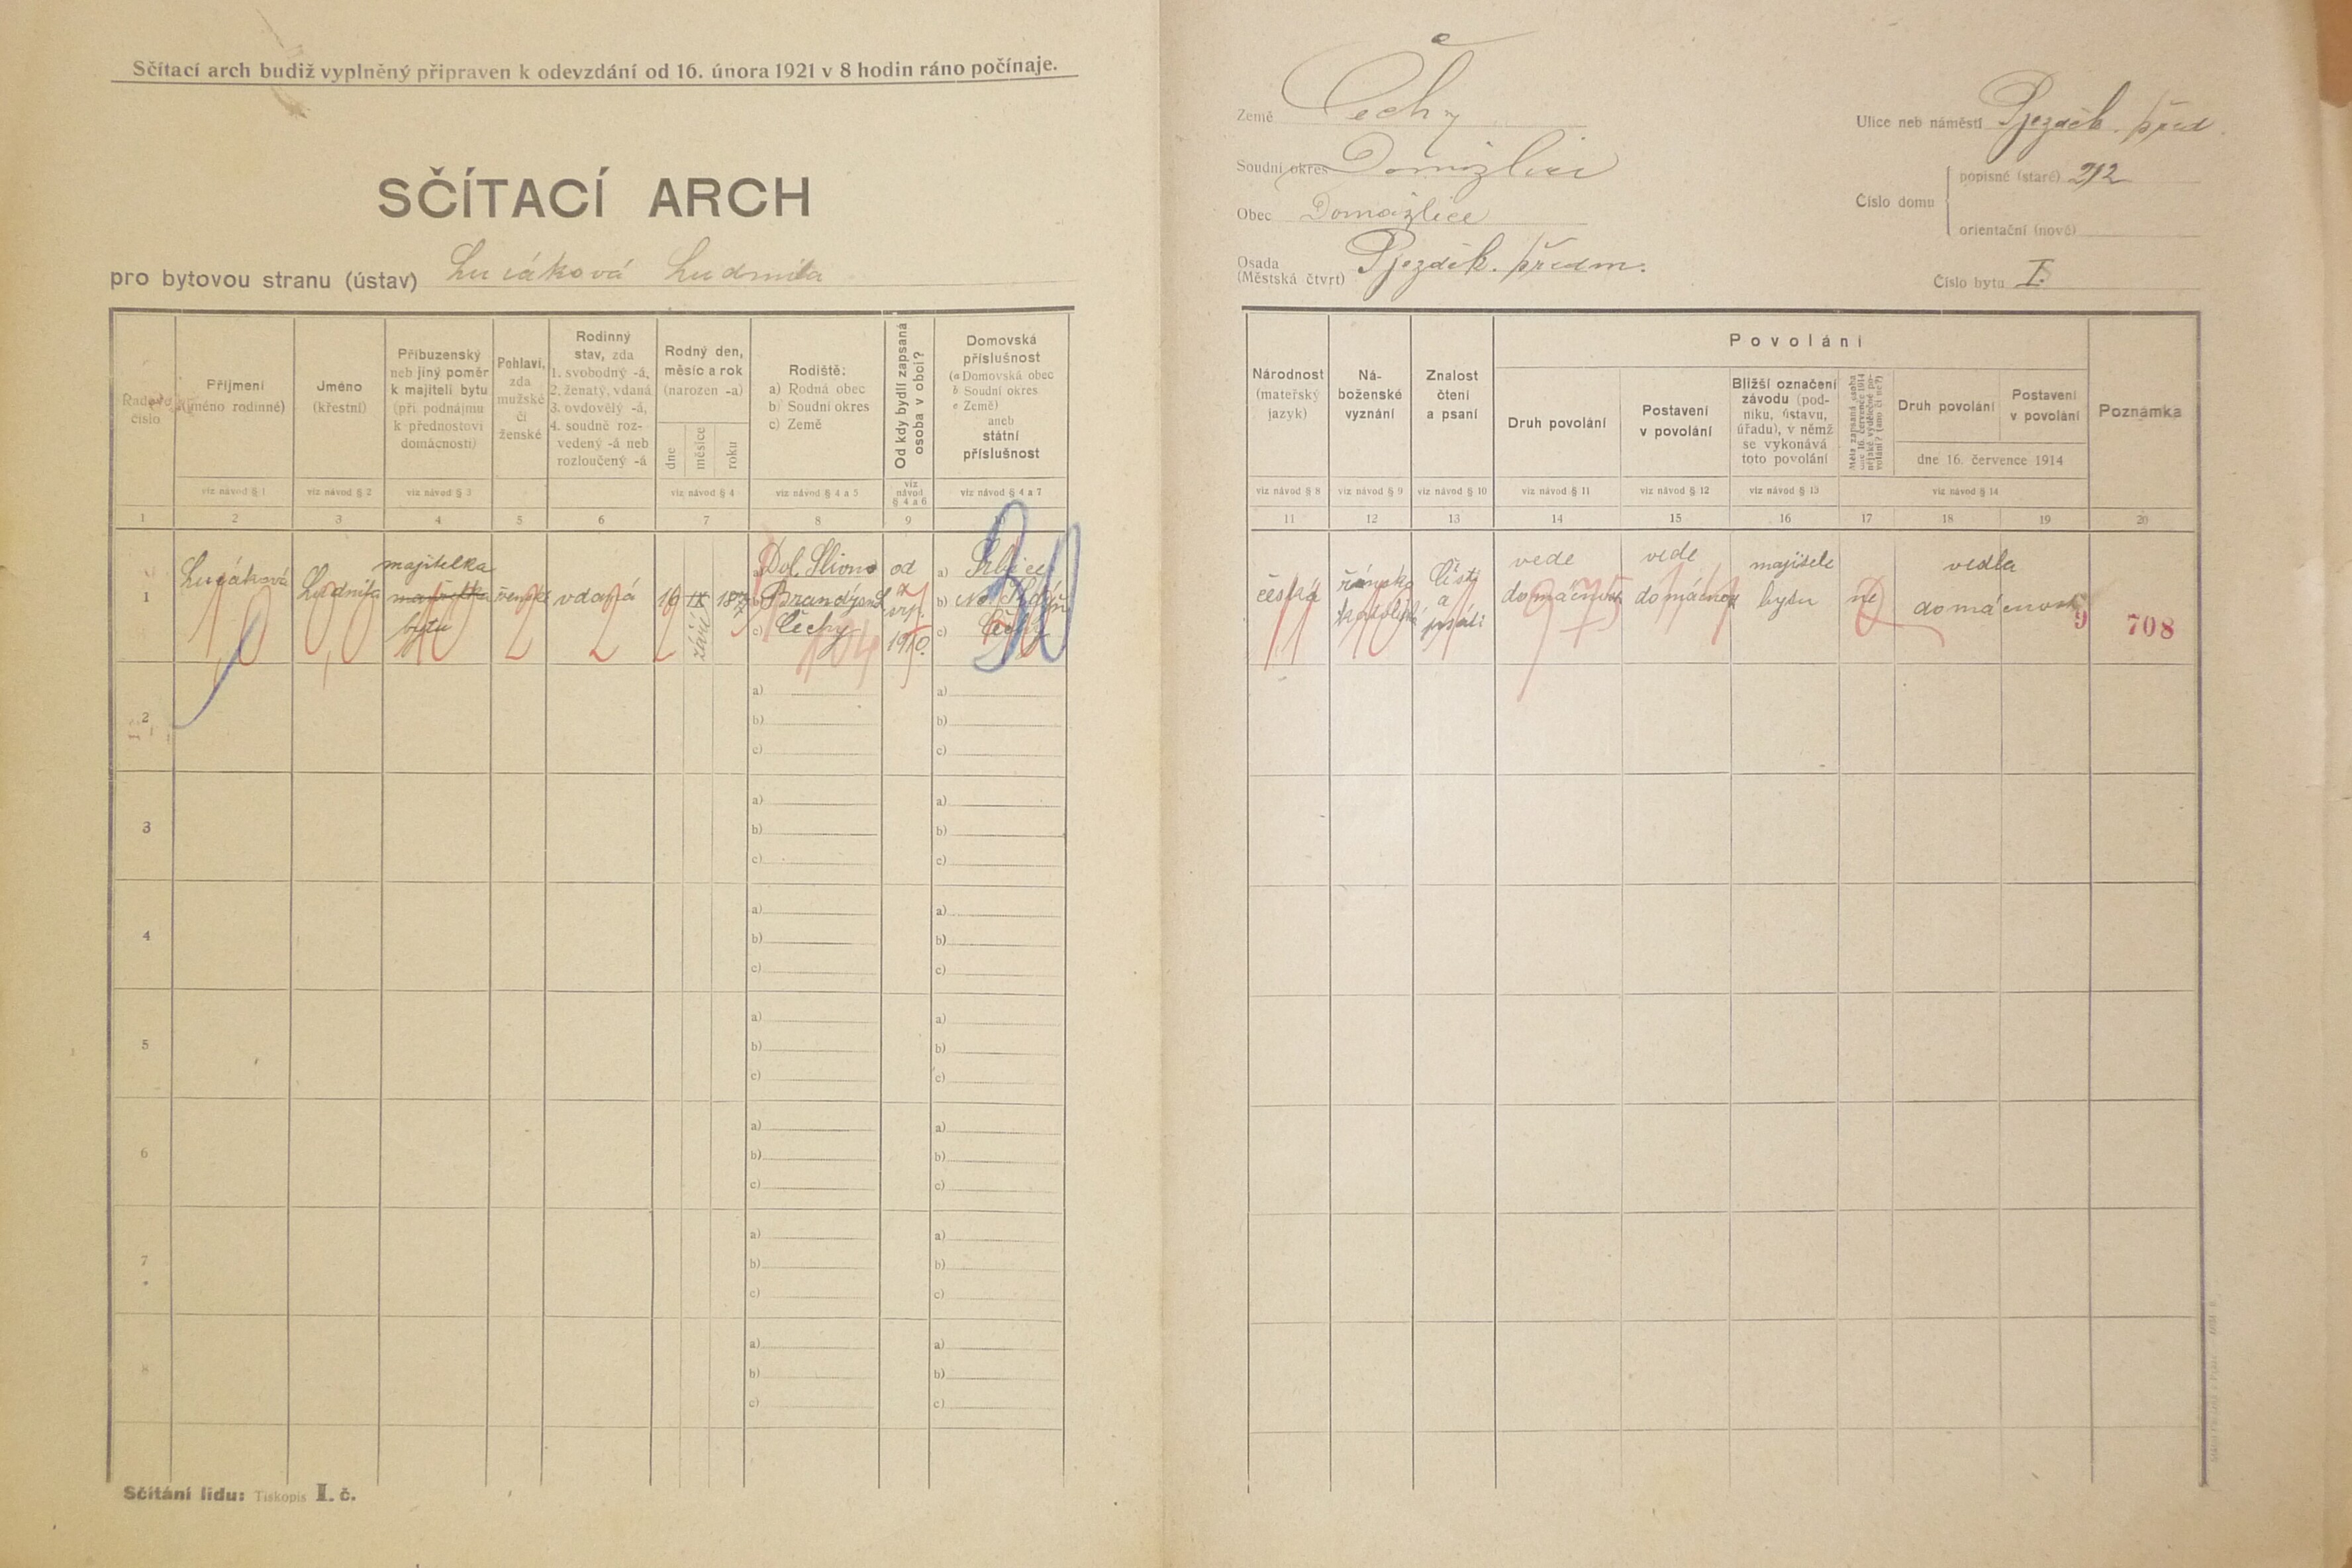 Sčítací arch budiž vyplněný připraven k odevzdání od 16. února 1921 v 8 hodin ráno počínaje.
SČÍTACÍ ARCH
pro bytovou stranu (ústav) Ludmila
Země Čechy
Soudní okres Domažlice
Obec Domažlice
Osada
(Městská čtvrť) předm.
Ulice neb náměstí před.
Číslo domu
popisné (staré) 212
orientační (nové)
Číslo bytu I.
Řadové
číslo
Příjmení
(jméno rodinné)
viz návod § 1
Jméno
(křestní)
viz návod § 2
Příbuzenský
neb jiný poměr
k majiteli bytu
(při podnájmu
k přednostovi
domácnosti)
viz návod § 3
Pohlaví,
zda
mužské
či
ženské
Rodinný
stav, zda
1. svobodný -á,
2. ženatý, vdaná
3. ovdovělý -á,
4. soudně roz-
vedený -á neb
rozloučený -á
Rodný den,
měsíc a rok
(narozen -a)
dne
měsíce
roku
viz návod § 4
Rodiště:
a) Rodná obec
b) Soudní okres
c) Země
viz návod § 4 a 5
Od kdy bydlí zapsaná
osoba v obci?
viz
návod
§ 4 a 6
Domovská
příslušnost
(a Domovská obec
b Soudní okres
c Země)
aneb
státní
příslušnost
viz návod § 4 a 7
1 2 3 4 5 6 7 8 9 10
Národnost
(mateřský
jazyk)
viz návod § 8
Ná-
boženské
vyznání
viz návod § 9
Znalost
čtení
a psaní
viz návod § 10
Povolání
Druh povolání
viz návod § 11
Postavení
v povolání
viz návod § 12
Bližší označení
závodu (pod-
niku, ústavu,
úřadu), v němž
se vykonává
toto povolání
viz návod § 13
Měla zapsaná osoba
dne 16. července 1914
nějaké výdělečné po-
volání? (ano či ne?)
Druh povolání
Postavení
v povolání
dne 16. července 1914
viz návod § 14
Poznámka
11 12 13 14 15 16 17 18 19 20
1
Ludmila
majitelka
bytu
ženské
vdaná
16
IX
září
a) Dol. Slivno
b)
c) Čechy
od
1910.
a) Srbice
b)
c) Čechy
česká
římsko
katolická
čísti
a
psáti
vede
domácnost
vede
domácnost
majitele
bytu
ne
vedla
domácnost
9
708
2
a)
b)
c)
a)
b)
c)
3
a)
b)
c)
a)
b)
c)
4
a)
b)
c)
a)
b)
c)
5
a)
b)
c)
a)
b)
c)
6
a)
b)
c)
a)
b)
c)
7
a)
b)
c)
a)
b)
c)
8
a)
b)
c)
a)
b)
c)
Sčítání lidu: Tiskopis I. č.